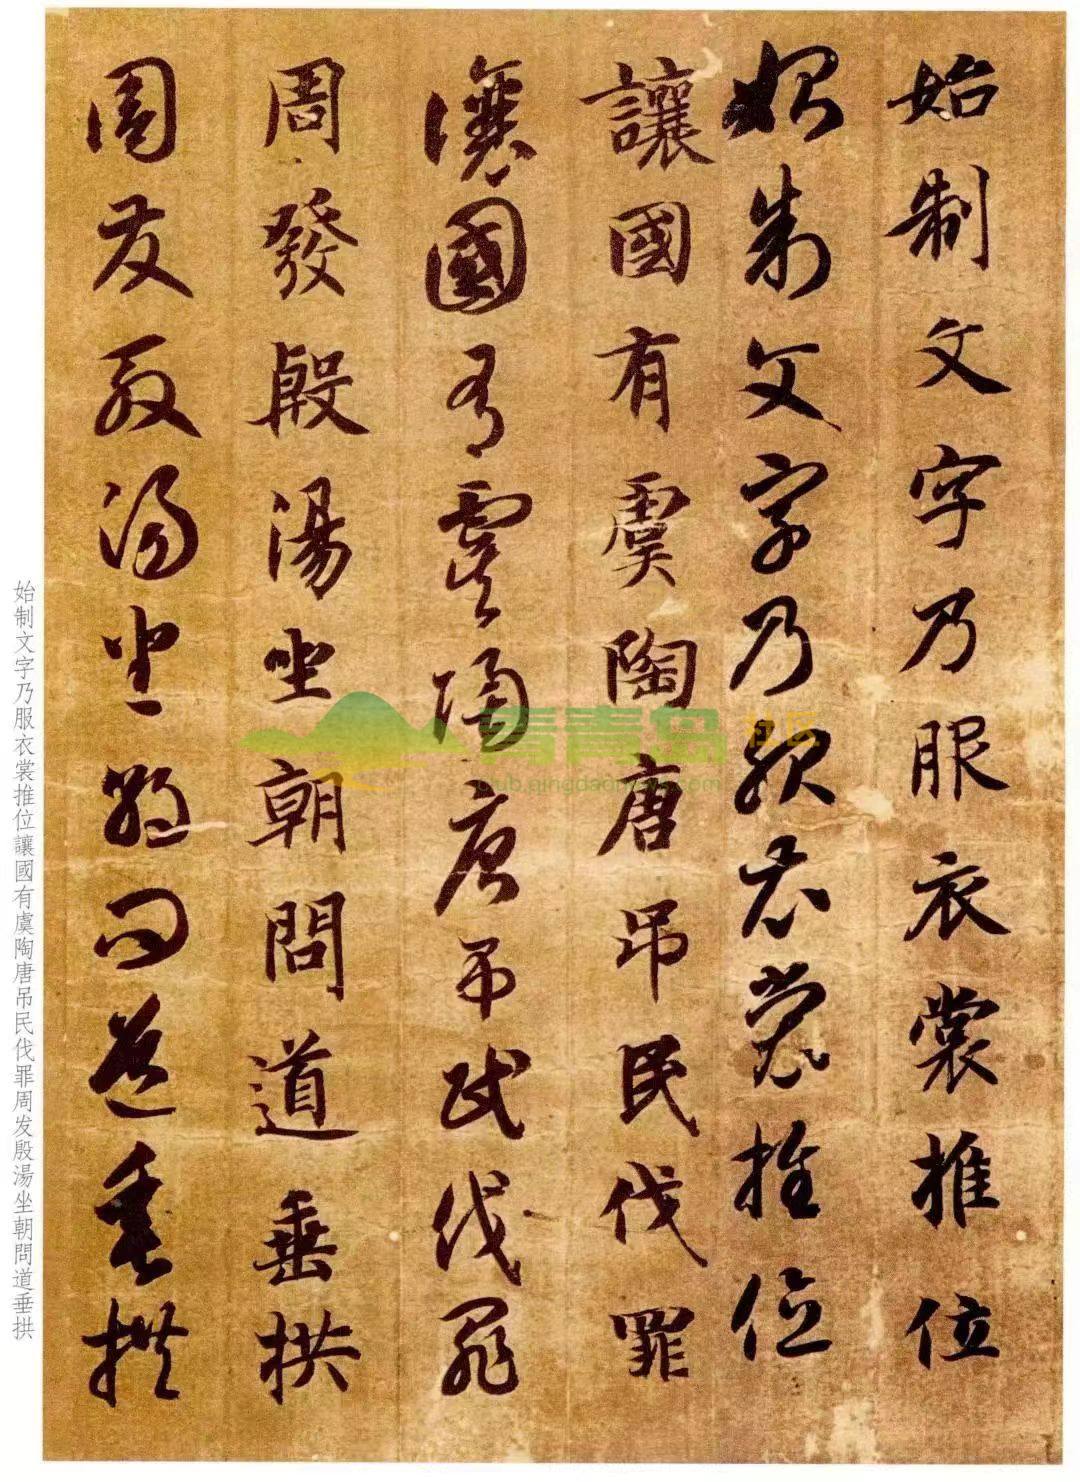 始制文字乃服衣裳推位
始制文字乃服衣裳推位
讓國有虞陶唐吊民伐罪
讓國有虞陶唐吊民伐罪
周發殷湯坐朝問道垂拱
周發殷湯坐朝問道垂拱
始制文字乃服衣裳推位讓國有虞陶唐吊民伐罪周发殷湯坐朝問道垂拱
青青岛社区
club.qingdaonews.com